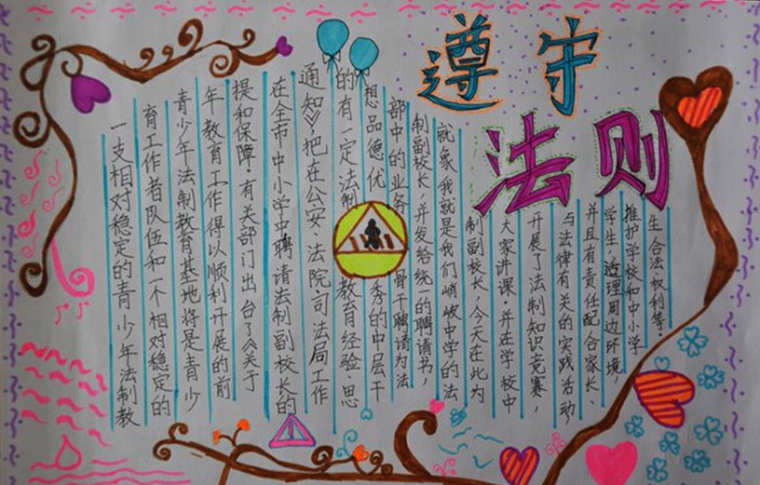 遵守
法则
一支相对稳定的青少年法制教
育工作者队伍和一个相对稳定的
青少年法制教育基地将是青少
年教育工作得以顺利开展的前
提和保障。有关部门出台了《关于
在全市中小学中聘请法制副校长的
通知》,把在公安、法院司法局工作
的有一定法制教育经验、思
想品德优秀的中层干
部中的业务骨干聘请为法
制副校长,并发给统的聘请书,
就象我就是我们峻中学的法
制副校长,今天在此为
大家讲课,并在学校中
开展了法制知识竞赛,
与法律有关的实践活动,
并且有责任配合家长、
学生,治理周边环境,
推护学校和中小学
生合法权利等。